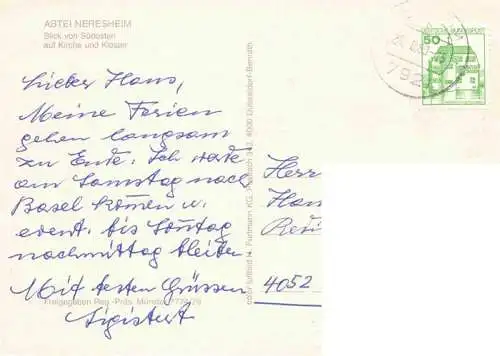 ABTEI NERESHEIM
Blick von Südosten
auf Kirche und Kloster
Lieber Hans,
Meine Ferien
gehen langsam
zu Ende. Ich werde
am Samstag nach
Basel kommen u.
event. bis Sonntag
nachmittag bleiben
Mit besten Grüssen
Freigegeben Reg.-Präs. Münster
color luftbild H. Furtmann KG, 4000 Düsseldorf-Benrath
50
DEUTSCHE BUNDESPOST
792
Herr
Han
4052